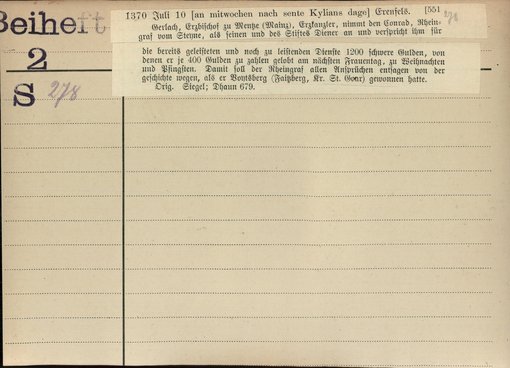 Beiheft
2
S 278
1370 Juli 10 [an mitwochen nach sente Kylians dage] Erenfels. [551
Gerlach, Erzbischof zu Mentze (Mainz), Erzkanzler, nimmt den Conrad, Rhein-
graf vom Steine, als seinen und des Stiftes Diener an und verspricht ihm für
die bereits geleisteten und noch zu leistenden Dienste 1200 schwere Gulden, von
denen er je 400 Gulden zu zahlen gelobt am nächsten Frauentag, zu Weihnachten
und Pfingsten. Damit soll der Rheingraf allen Ansprüchen entsagen von der
geschichte wegen, als er Vontsberg (Faitzberg, Kr. St. Goar) gewonnen hatte.
Orig. Siegel; Dhaun 679.